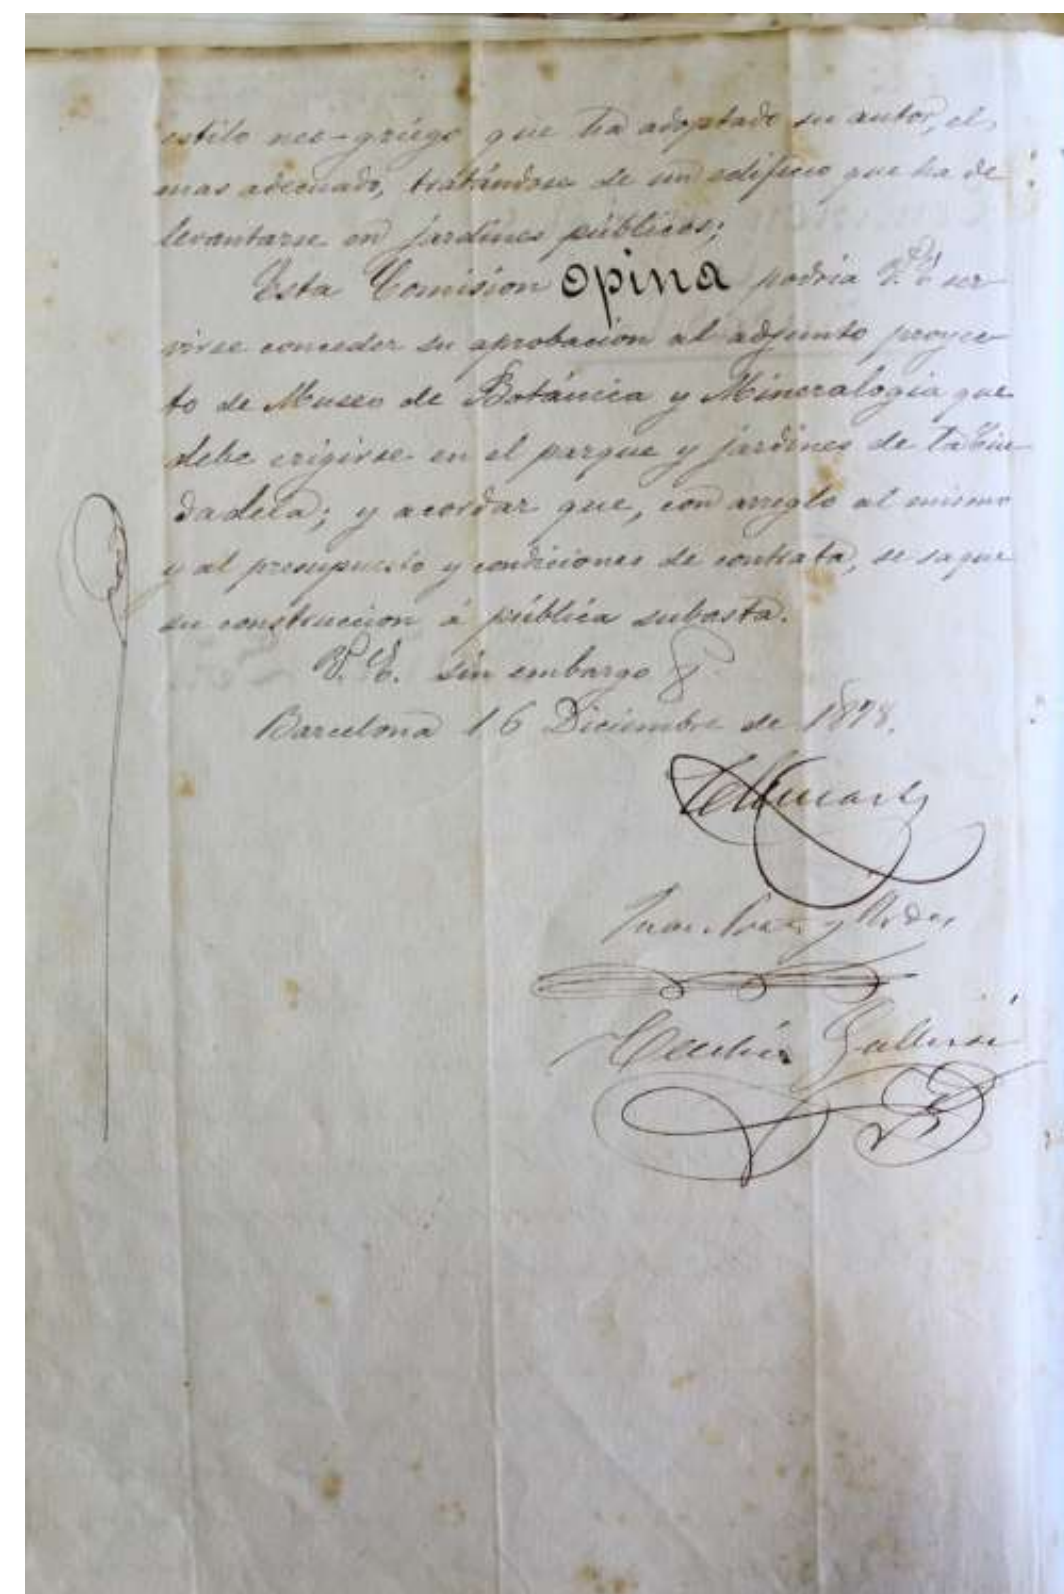 estilo neo-griego que ha adoptado su autor, el
mas adecuado, tratándose de un edificio que ha de
levantarse en jardines públicos;
Esta Comision opina podria V. E. ser-
virse conceder su aprobacion al adjunto proyec-
to de Museo de Botánica y Mineralogia que
debe erigirse en el parque y jardines de la Ciu-
dadela; y acordar que, con arreglo al mismo
y al presupuesto y condiciones de contrata, se saque
su construccion á pública subasta.
V. E. sin embargo
Barcelona 16 Diciembre de 1878.
Juan y